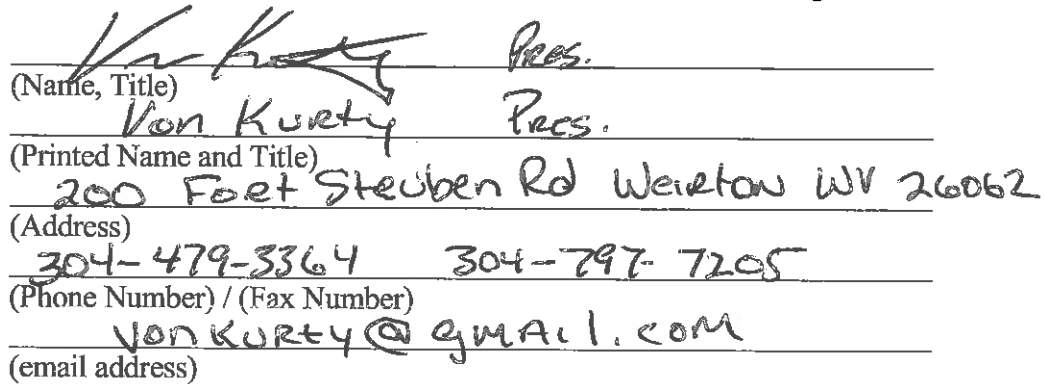 Von Kurty Pres.
(Name, Title)
Von Kurty Pres.
(Printed Name and Title)
200 Fort Steuben Rd Weirton WV 26062
(Address)
304-479-3364 304-797-7205
(Phone Number) / (Fax Number)
VonKURty@gmAil.com
(email address)